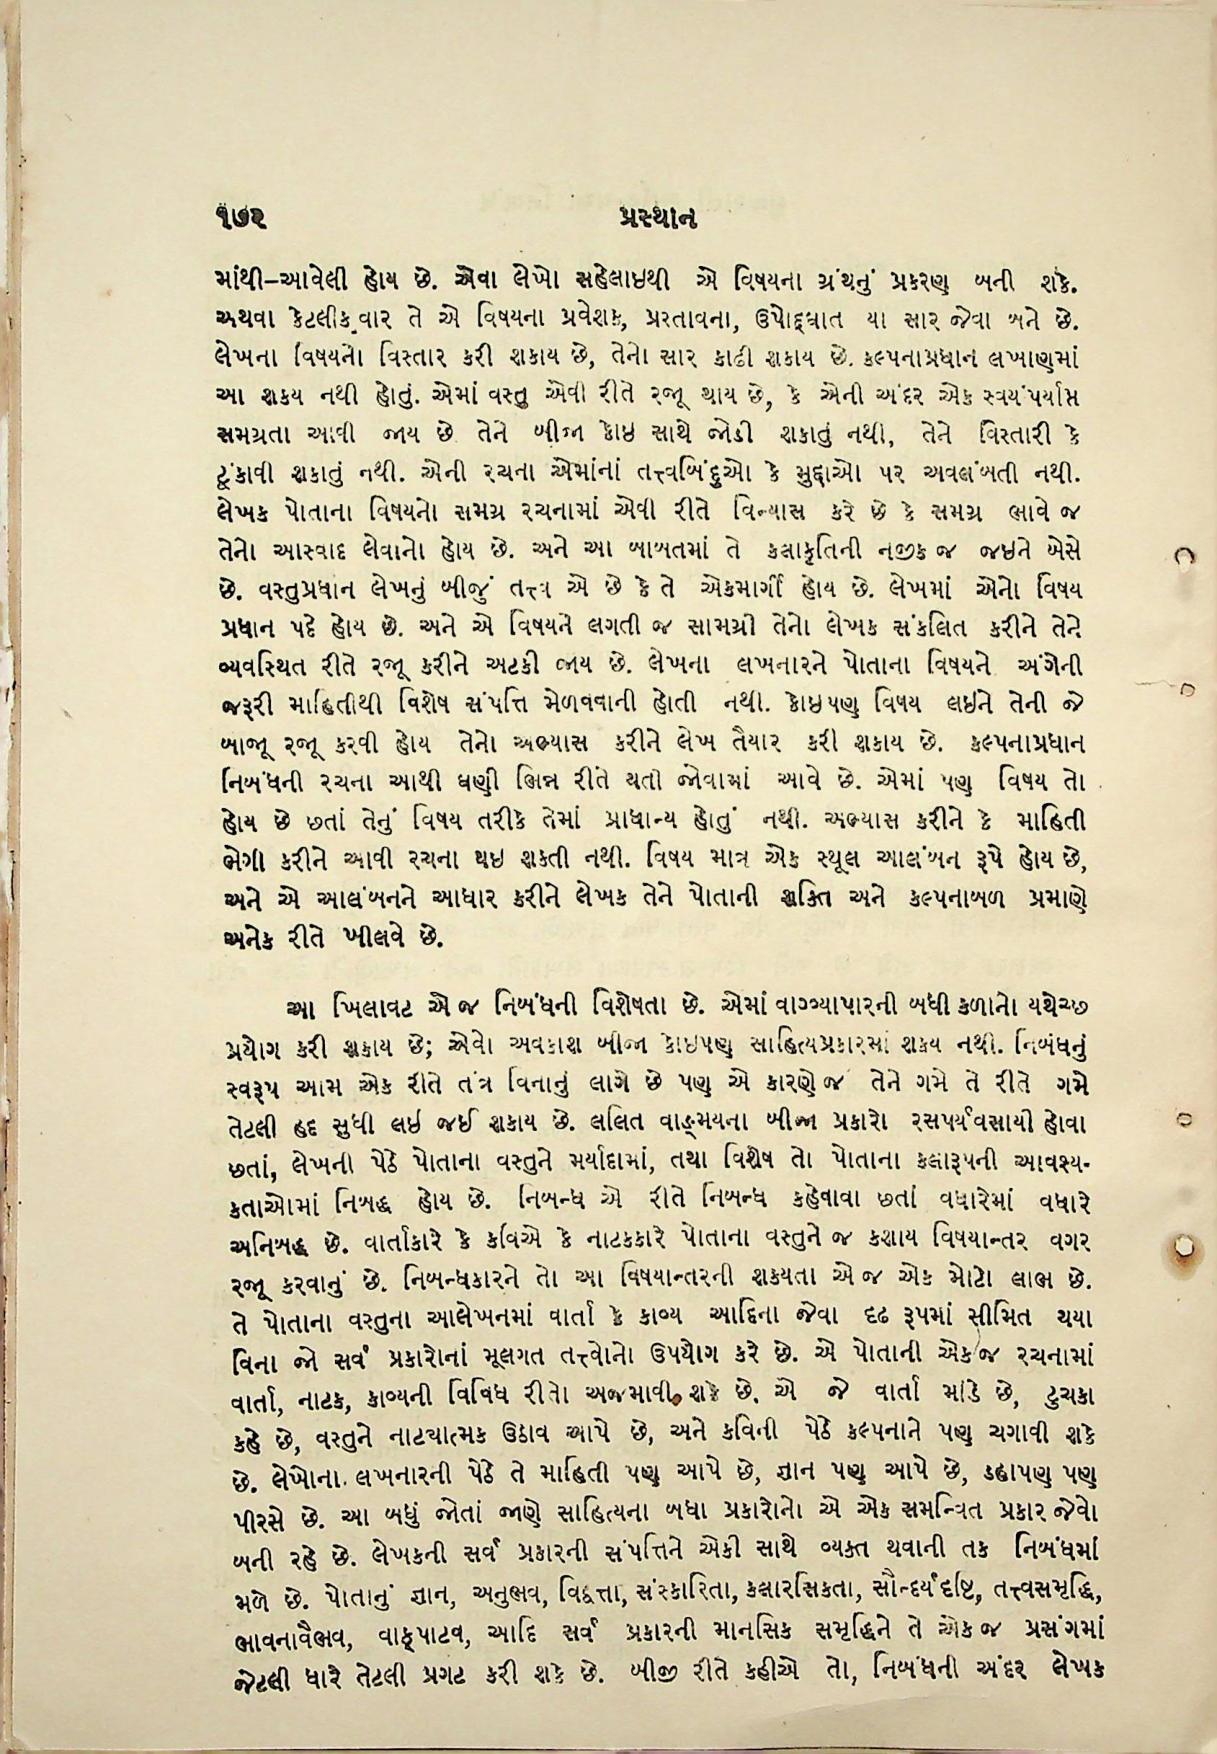 ૧૭૨ પ્રસ્થાન
માંથી–આવેલી હોય છે. એવા લેખો સહેલાઇથી એ વિષયના ગ્રંથનું પ્રકરણ બની શકે.
અથવા કેટલીક વાર તે એ વિષયના પ્રવેશક, પ્રસ્તાવના, ઉપોદ્ઘાત યા સાર જેવા બને છે.
લેખના વિષયનો વિસ્તાર કરી શકાય છે, તેનો સાર કાઢી શકાય છે. કલ્પનાપ્રધાન લખાણમાં
આ શક્ય નથી હોતું. એમાં વસ્તુ એવી રીતે રજૂ થાય છે, કે એની અંદર એક સ્વયંપર્યાપ્ત
સમગ્રતા આવી જાય છે તેને બીજા કોઇ સાથે જોડી શકાતું નથી, તેને વિસ્તારી કે
ટૂંકાવી શકાતું નથી. એની રચના એમાંનાં તત્ત્વબિંદુઓ કે મુદ્દાઓ પર અવલંબતી નથી.
લેખક પોતાના વિષયનો સમગ્ર રચનામાં એવી રીતે વિન્યાસ કરે છે કે સમગ્ર ભાવે જ
તેનો આસ્વાદ લેવાનો હોય છે. અને આ બાબતમાં તે કલાકૃતિની નજીક જ જઇને બેસે
છે. વસ્તુપ્રધાન લેખનું બીજું તત્ત્વ એ છે કે તે એકમાર્ગી હોય છે. લેખમાં એનો વિષય
પ્રધાન પદે હોય છે. અને એ વિષયને લગતી જ સામગ્રી તેનો લેખક સંકલિત કરીને તેને
વ્યવસ્થિત રીતે રજૂ કરીને અટકી જાય છે. લેખના લખનારને પોતાના વિષયને અંગેની
જરૂરી માહિતીથી વિશેષ સંપત્તિ મેળવવાની હોતી નથી. કોઇપણ વિષય લઇને તેની જે
બાજૂ રજૂ કરવી હોય તેનો અભ્યાસ કરીને લેખ તૈયાર કરી શકાય છે. કલ્પનાપ્રધાન
નિબંધની રચના આથી ઘણી ભિન્ન રીતે થતી જોવામાં આવે છે. એમાં પણ વિષય તો
હોય છે છતાં તેનું વિષય તરીકે તેમાં પ્રાધાન્ય હોતું નથી. અભ્યાસ કરીને કે માહિતી
ભેગી કરીને આવી રચના થઇ શકતી નથી. વિષય માત્ર એક સ્થૂલ આલંબન રૂપે હોય છે,
અને એ આલંબનને આધાર કરીને લેખક તેને પોતાની શક્તિ અને કલ્પનાબળ પ્રમાણે
અનેક રીતે ખીલવે છે.
આ ખિલાવટ એ જ નિબંધની વિશેષતા છે. એમાં વાગ્વ્યાપારની બધી કળાનો યથેચ્છ
પ્રયોગ કરી શકાય છે; એવો અવકાશ બીજા કોઇપણ સાહિત્યપ્રકારમાં શક્ય નથી. નિબંધનું
સ્વરૂપ આમ એક રીતે તંત્ર વિનાનું લાગે છે પણ એ કારણે જ તેને ગમે તે રીતે ગમે
તેટલી હદ સુધી લઇ જઈ શકાય છે. લલિત વાઙ્મયના બીજા પ્રકારો રસપર્યવસાયી હોવા
છતાં, લેખની પેઠે પોતાના વસ્તુને મર્યાદામાં, તથા વિશેષ તો પોતાના કલારૂપની આવશ્ય-
કતાઓમાં નિબદ્ધ હોય છે. નિબન્ધ એ રીતે નિબન્ધ કહેવાવા છતાં વધારેમાં વધારે
અનિબદ્ધ છે. વાર્તાકારે કે કવિએ કે નાટકકારે પોતાના વસ્તુને જ કશાય વિષયાન્તર વગર
રજૂ કરવાનું છે. નિબન્ધકારને તો આ વિષયાન્તરની શક્યતા એ જ એક મોટો લાભ છે.
તે પોતાના વસ્તુના આલેખનમાં વાર્તા કે કાવ્ય આદિના જેવા દૃઢ રૂપમાં સીમિત થયા
વિના જો સર્વ પ્રકારોનાં મૂલગત તત્ત્વોનો ઉપયોગ કરે છે. એ પોતાની એક જ રચનામાં
વાર્તા, નાટક, કાવ્યની વિવિધ રીતો અજમાવી શકે છે. એ જે વાર્તા માંડે છે, ટુચકા
કહે છે, વસ્તુને નાટ્યાત્મક ઉઠાવ આપે છે, અને કવિની પેઠે કલ્પનાને પણ ચગાવી શકે
છે. લેખોના લખનારની પેઠે તે માહિતી પણ આપે છે, જ્ઞાન પણ આપે છે, ડહાપણ પણ
પીરસે છે. આ બધું જોતાં જાણે સાહિત્યના બધા પ્રકારોનો એ એક સમન્વિત પ્રકાર જેવો
બની રહે છે. લેખકની સર્વ પ્રકારની સંપત્તિને એકી સાથે વ્યક્ત થવાની તક નિબંધમાં
મળે છે. પોતાનું જ્ઞાન, અનુભવ, વિદ્વત્તા, સંસ્કારિતા, કલારસિકતા, સૌન્દર્યદૃષ્ટિ, તત્ત્વસમૃદ્ધિ,
ભાવનાવૈભવ, વાક્પાટવ, આદિ સર્વ પ્રકારની માનસિક સમૃદ્ધિને તે એક જ પ્રસંગમાં
જેટલી ધારે તેટલી પ્રગટ કરી શકે છે. બીજી રીતે કહીએ તો, નિબંધની અંદર લેખક